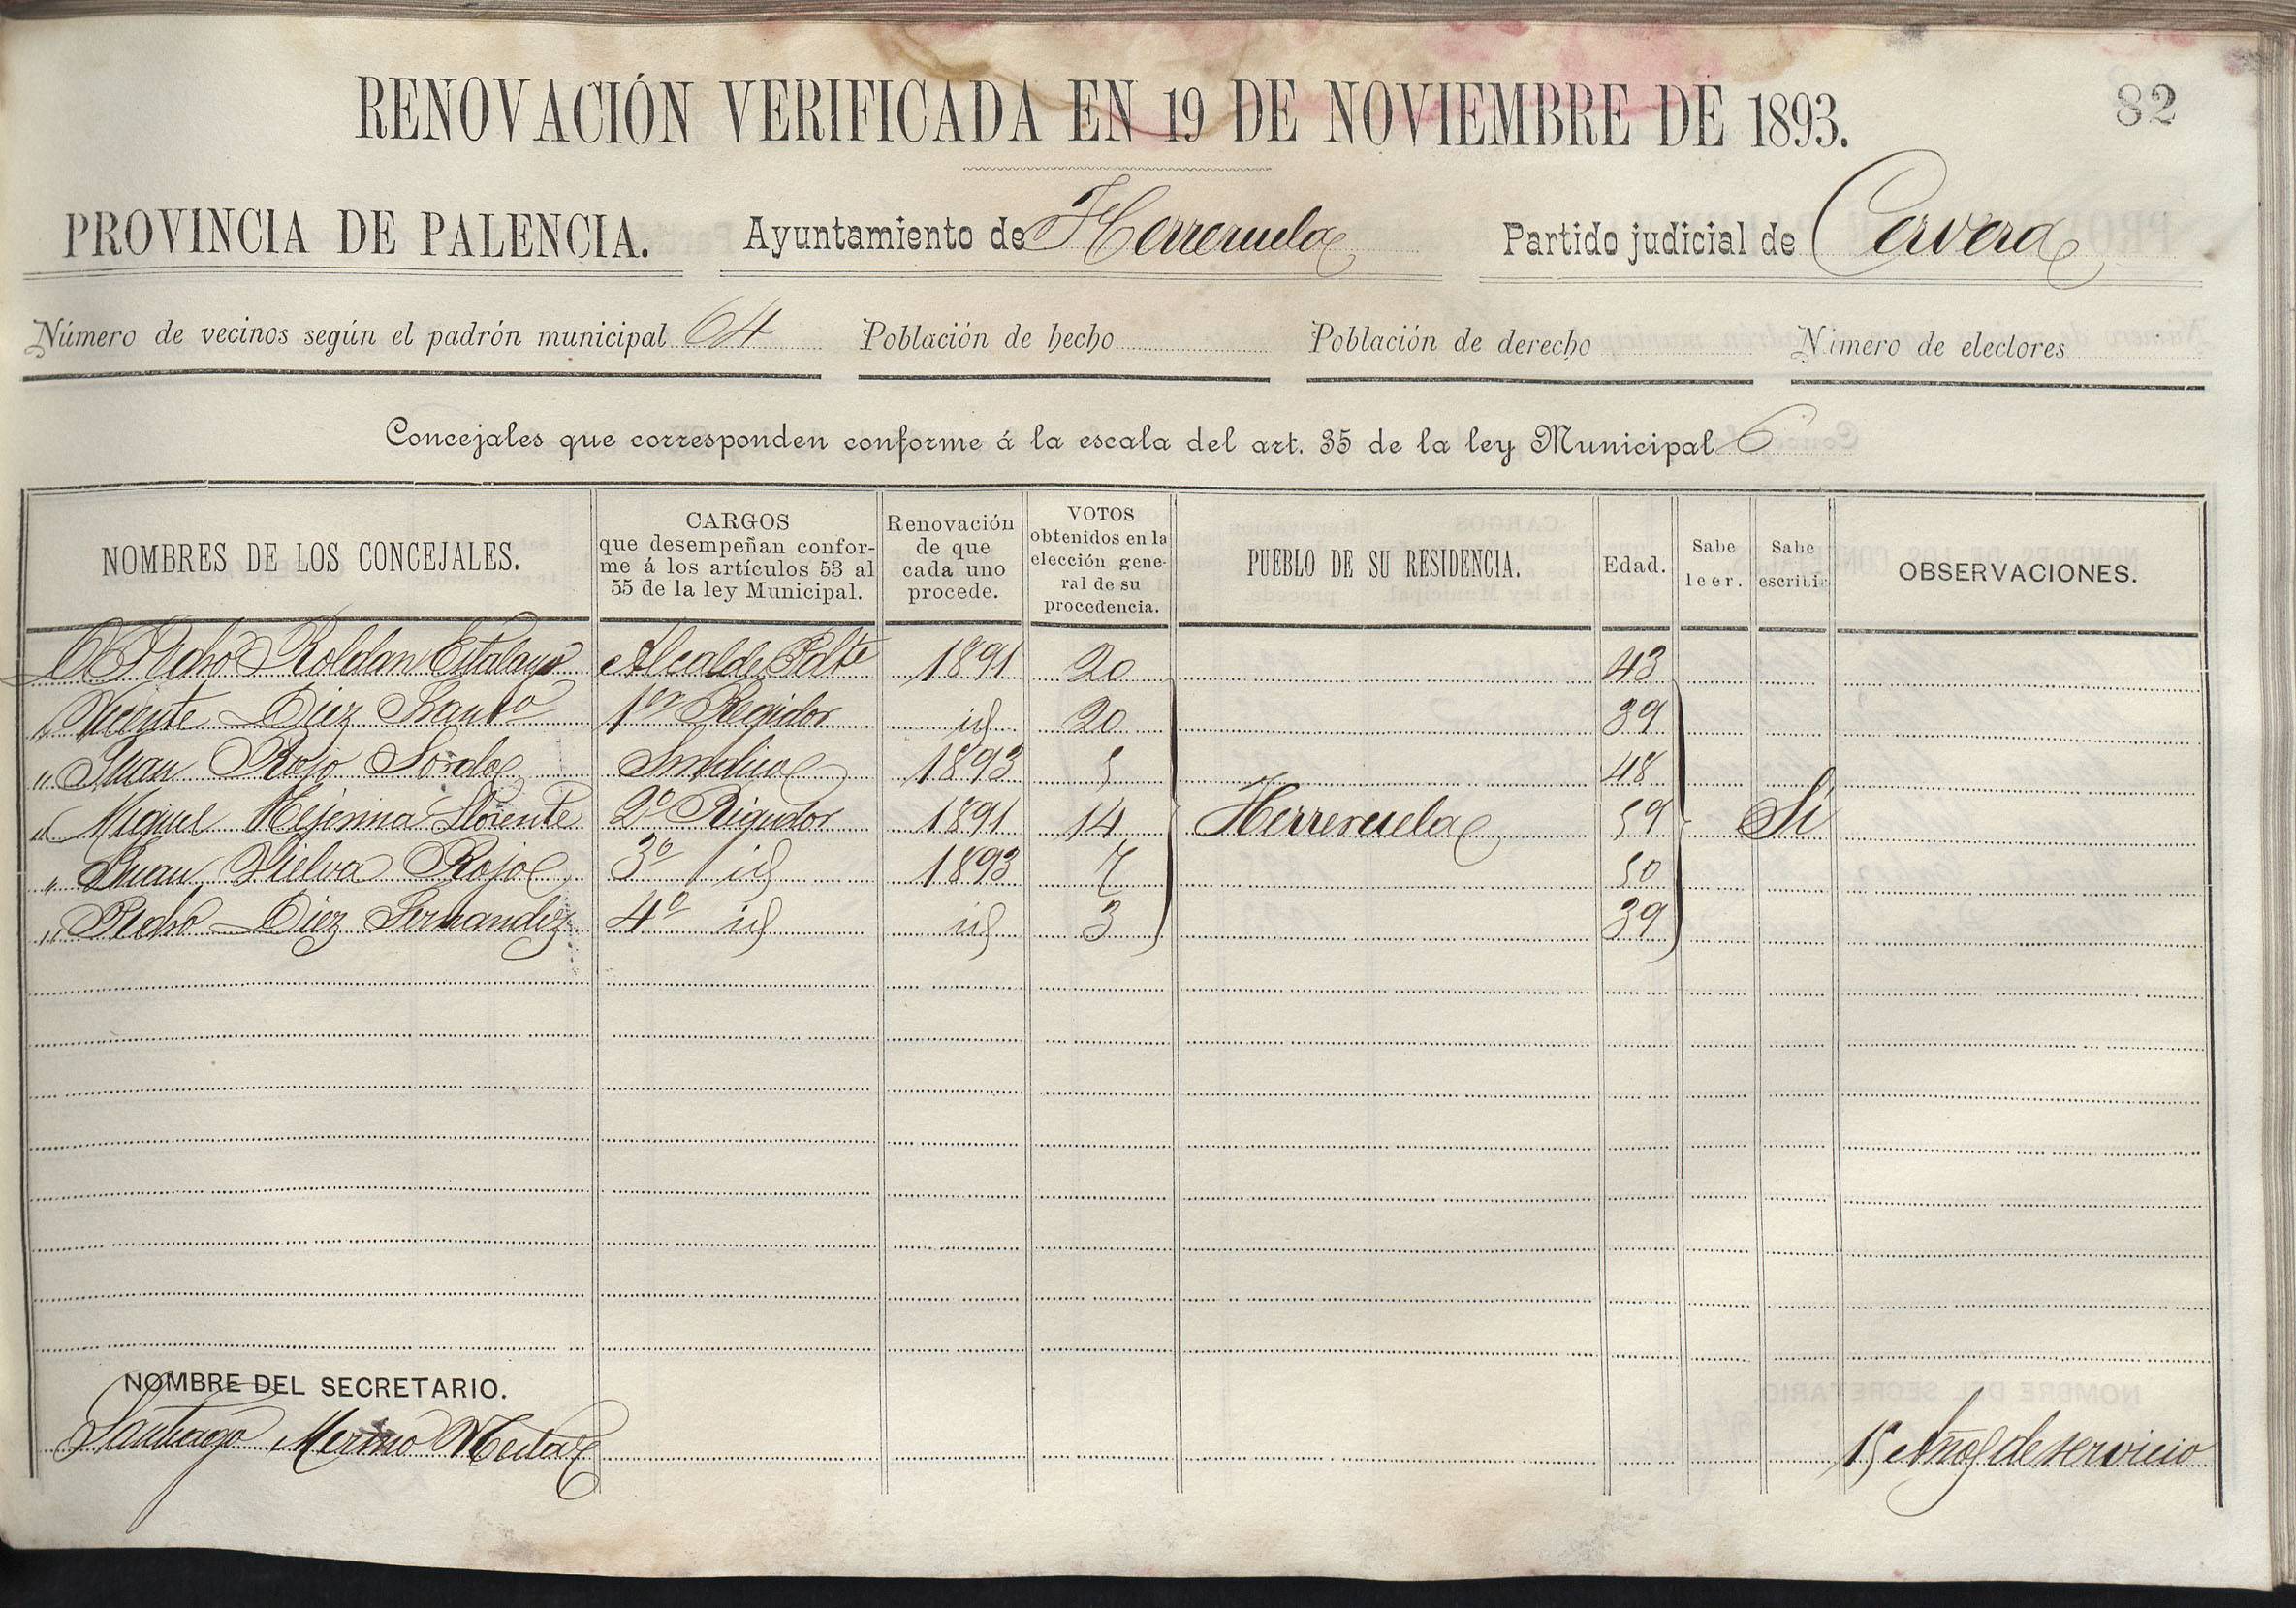 82
RENOVACIÓN VERIFICADA EN 19 DE NOVIEMBRE DE 1893.
PROVINCIA DE PALENCIA. Ayuntamiento de Herreruela Partido judicial de Cervera
Número de vecinos según el padrón municipal 64 Población de hecho Población de derecho Número de electores
Concejales que corresponden conforme á la escala del art. 35 de la ley Municipal 6
NOMBRES DE LOS CONCEJALES. CARGOS que desempeñan confor-me á los artículos 53 al 55 de la ley Municipal. Renovación de que cada uno procede. VOTOS obtenidos en la elección gene-ral de su procedencia. PUEBLO DE SU RESIDENCIA. Edad. Sabe leer. Sabe escribir OBSERVACIONES.
Pedro Roldan Estalayo Alcalde Pdte 1891 20 43
" Vicente Diez 1er Regidor id 20 39
" Juan Rojo Sordo Sindico 1893 5 48
" Miguel Llorente 2º Regidor 1891 14 Herreruela 59 Si
" Juan Vielva Rojo 3º id 1893 7 50
" Pedro Diez Fernandez 4º id id 3 39
NOMBRE DEL SECRETARIO.
Santiago Merino 15 Años de servicio